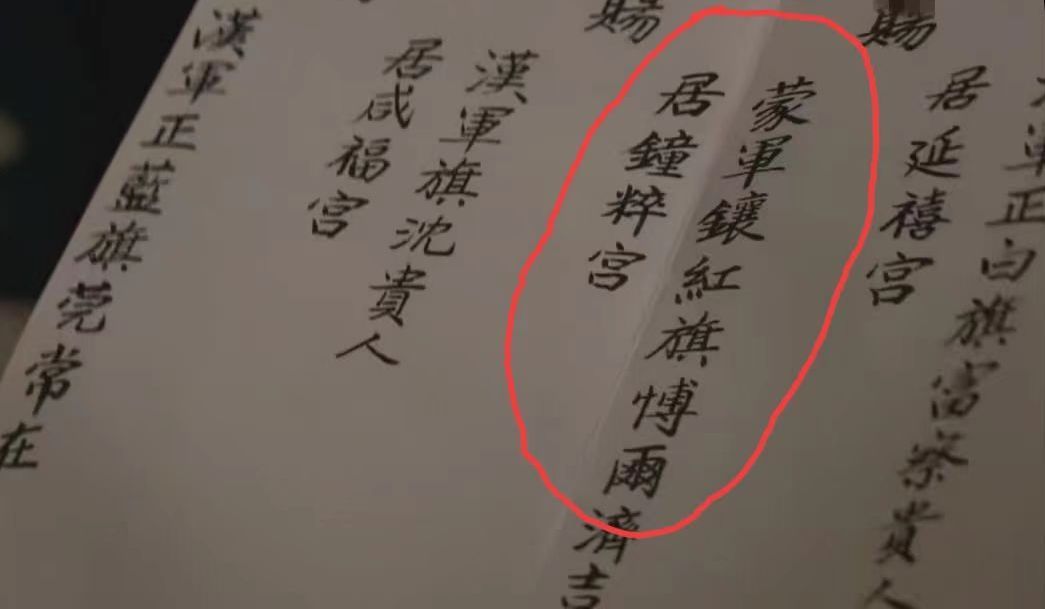 軍正白旗富察貴人
居延禧宮
賜
蒙軍鑲紅旗愽爾濟吉
居鐘粹宮
賜
漢軍旗沈貴人
居咸福宮
漢軍正藍旗莞常在